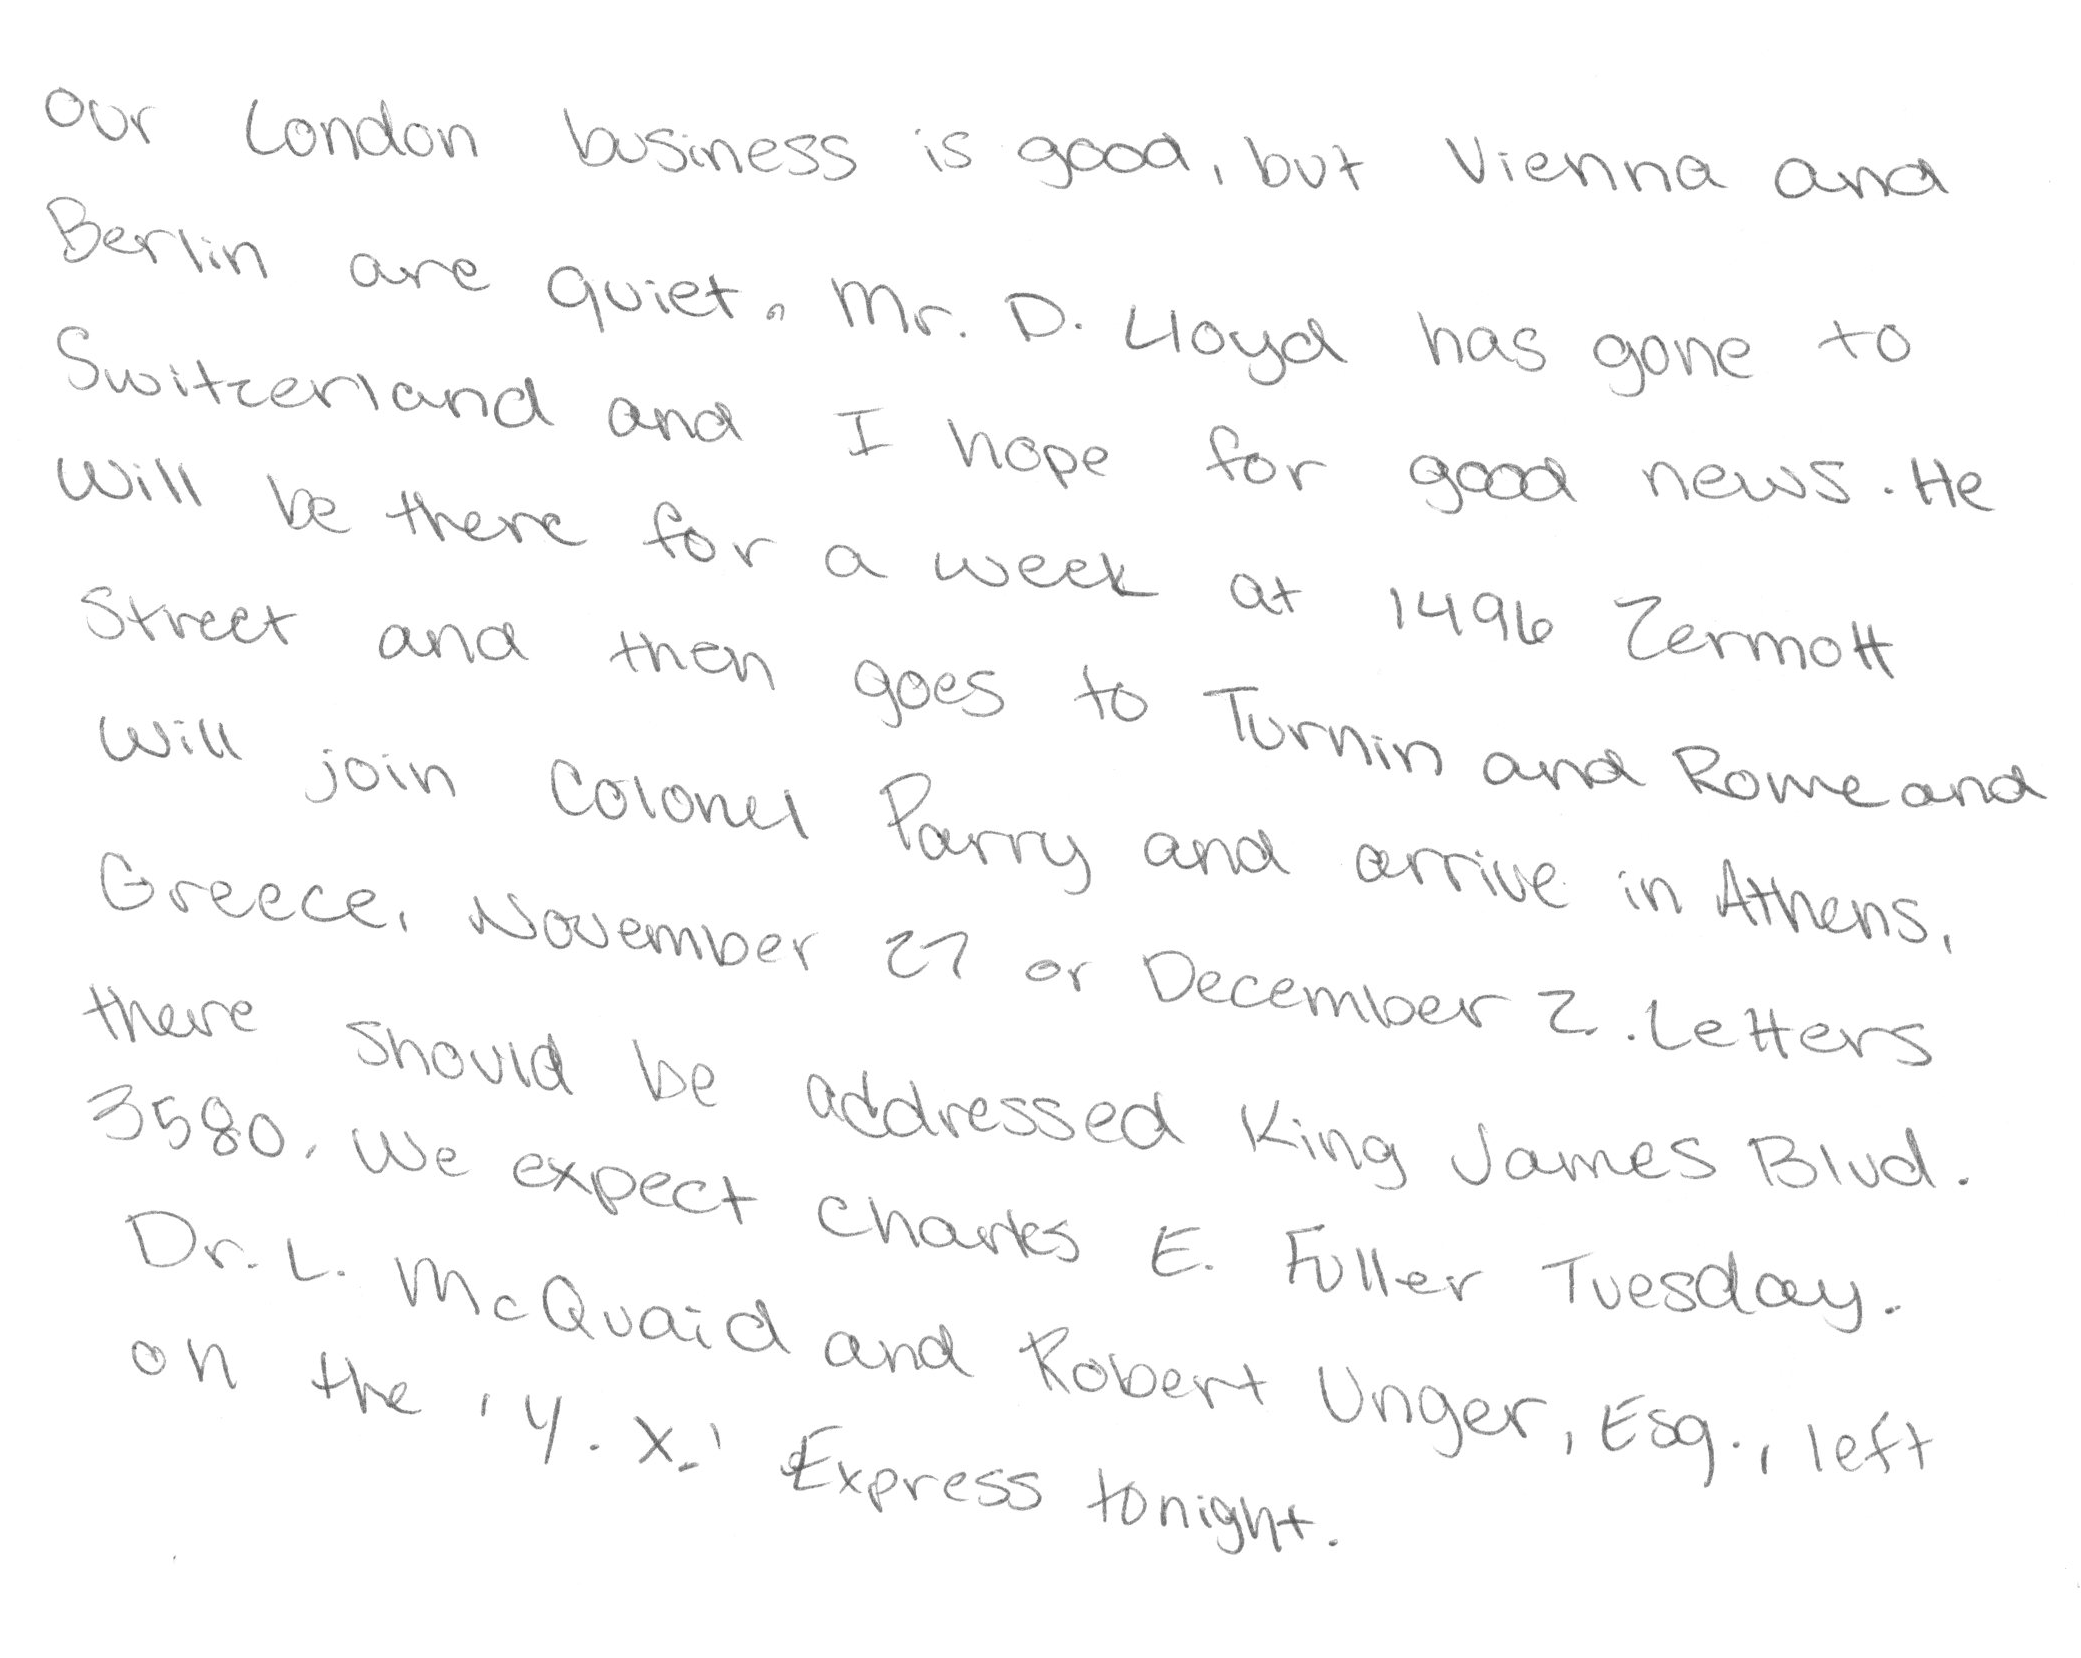 Our London business is good, but Vienna and
Berlin are quiet. Mr. D. Lloyd has gone to
Switzerland and I hope for good news. He
will be there for a week at 1496 Zermott
Street and then goes to Turnin and Rome and
will join Colonel Parry and arrive in Athens,
Greece, November 27 or December 2. Letters
there should be addressed King James Blvd.
3580. We expect Charles E. Fuller Tuesday.
Dr. L. McQuaid and Robert Unger, Esq., left
on the 'Y. X.' Express tonight.